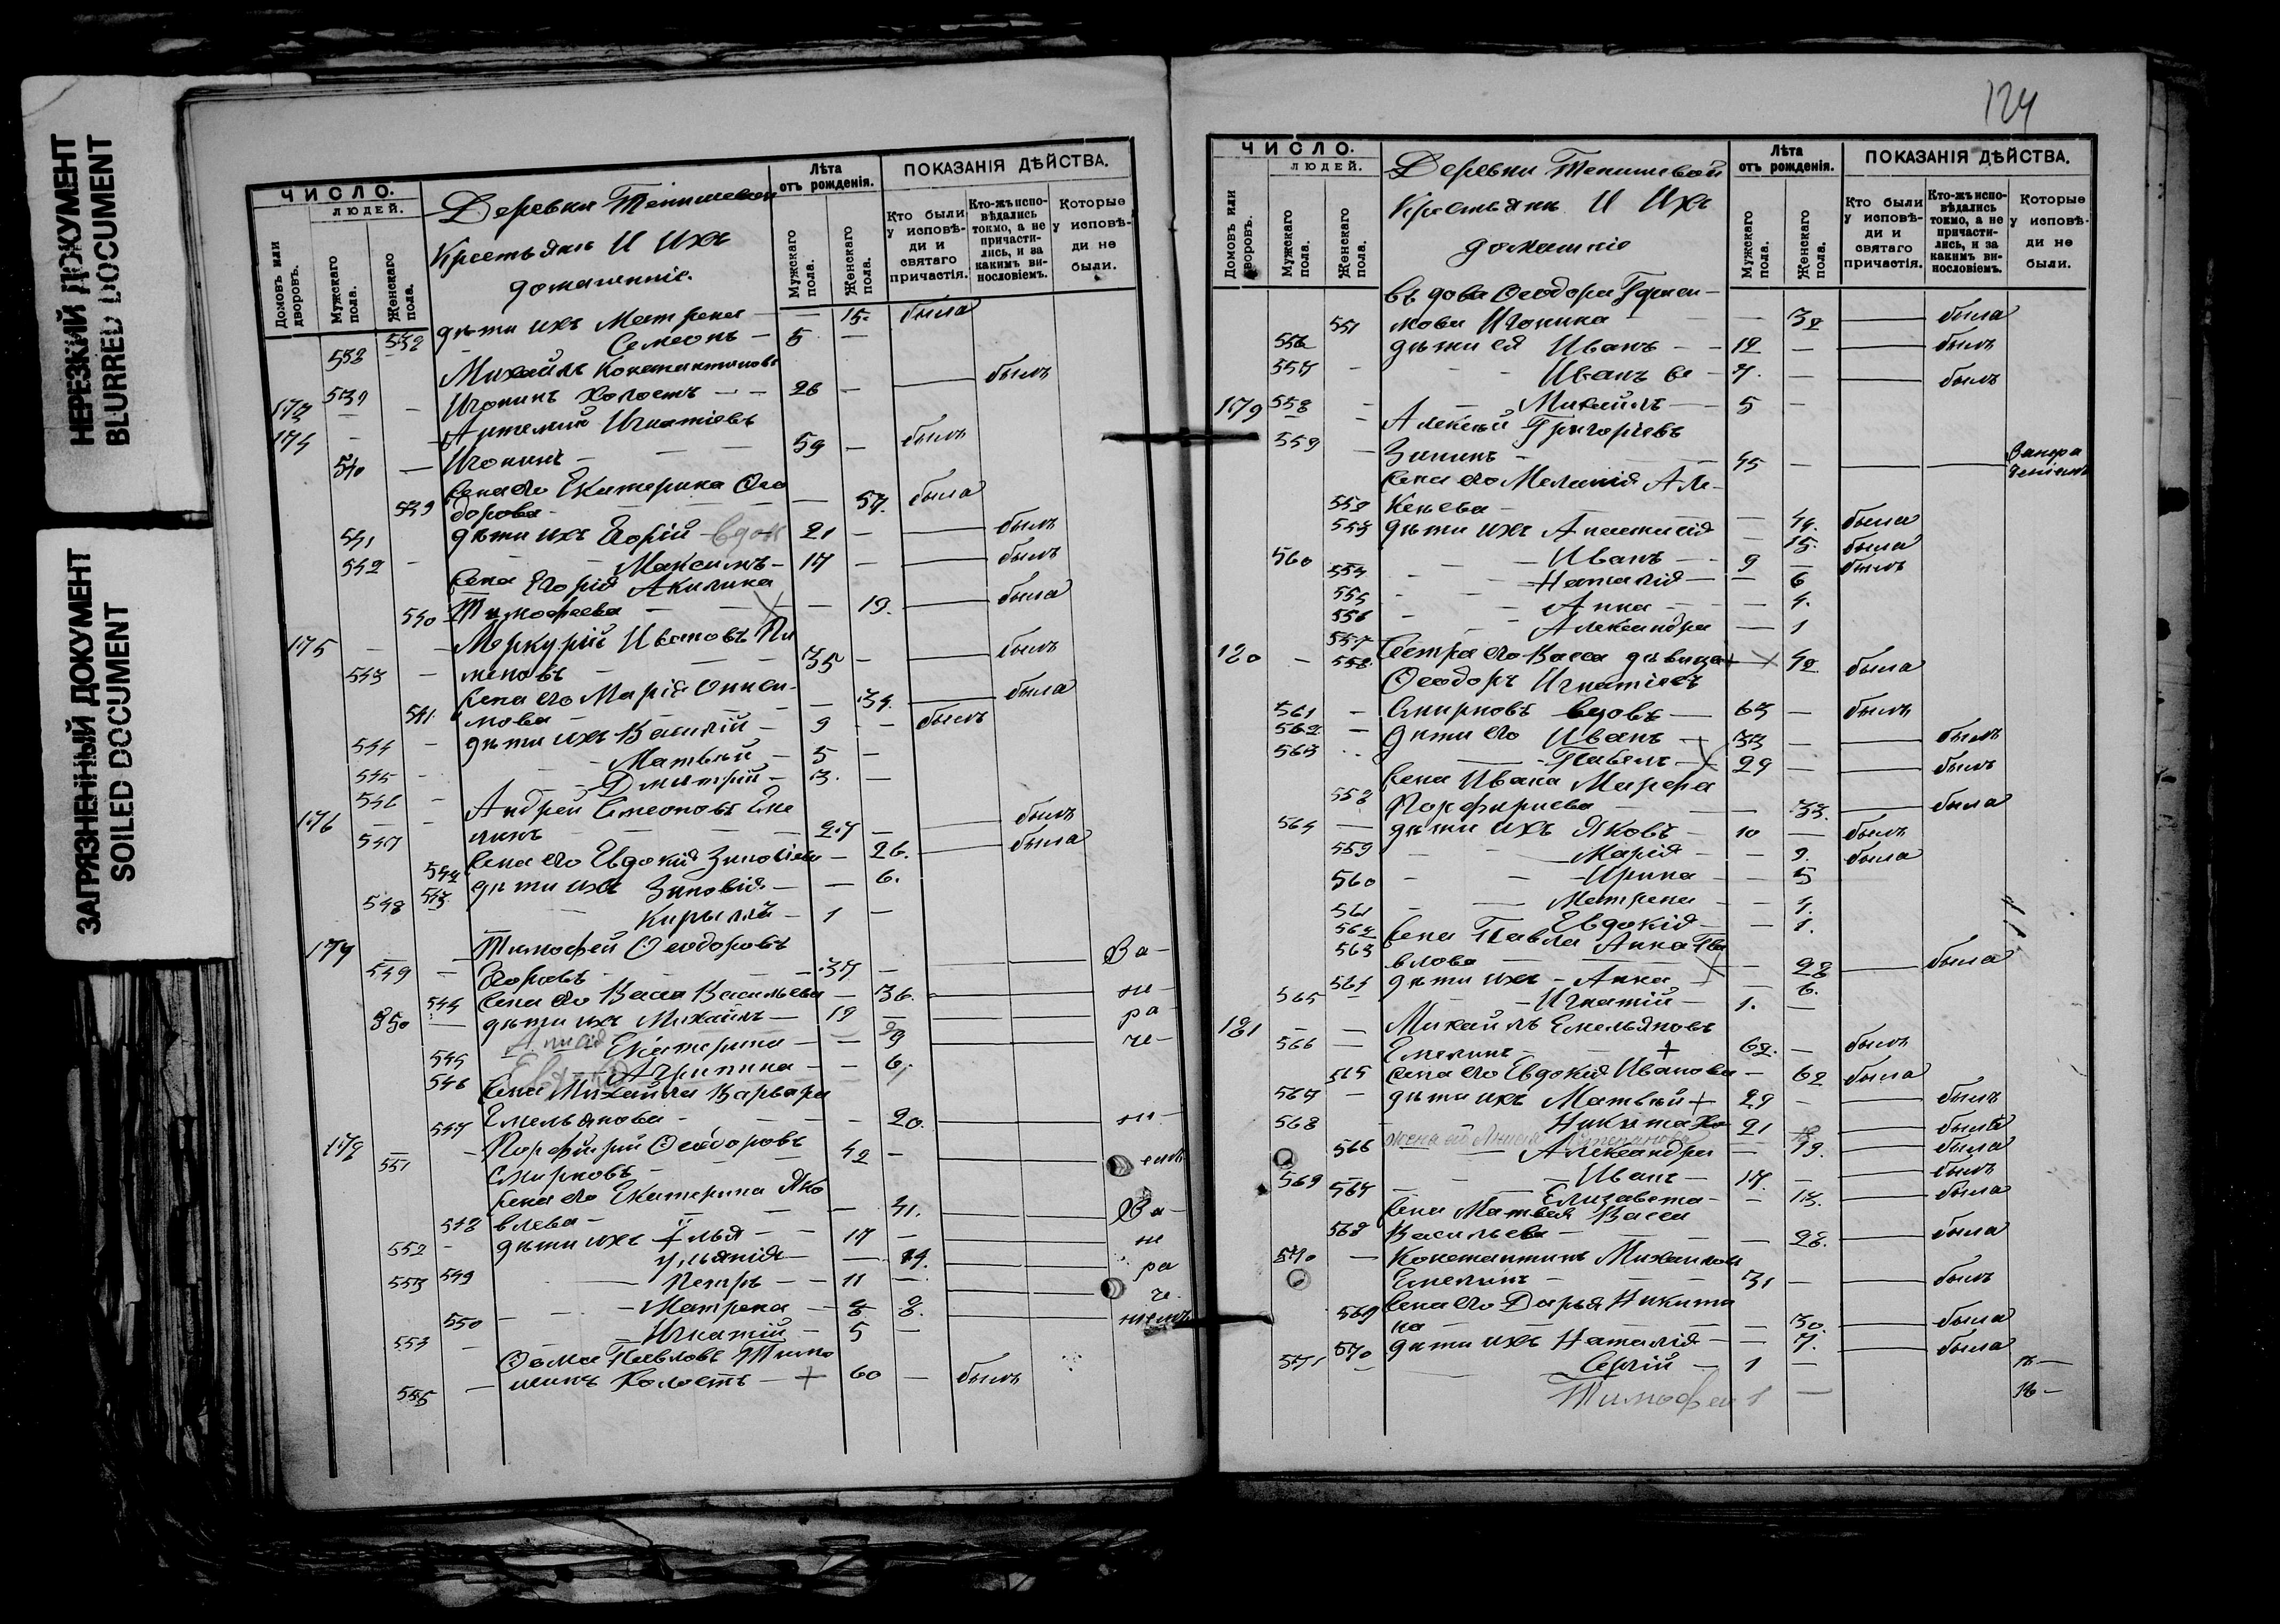 НЕРЕЗКИЙ ДОКУМЕНТ
BLURRED DOCUMENT
ЗАГРЯЗНЕННЫЙ ДОКУМЕНТ
SOILED DOCUMENT
ЧИСЛО.
ЛЮДЕЙ.
Домовъ или дворовъ.
Мужскаго пола.
Женскаго пола.
Деревни Тенишевой
Крестьяне И Ихъ
домашніе.
Лѣта
отъ рожденія.
Мужскаго пола.
Женскаго пола.
ПОКАЗАНІЯ ДѢЙСТВА.
Кто были у исповѣ-ди и святаго причастія.
Кто-жъ испо-вѣдались токмо, а не причасти-лись, и за какимъ ви-нословіемъ.
Которые у исповѣ-ди не были.
538 дѣти ихъ Матрена — 15 была
538 Семеонъ — 5 —
Михаилъ Константиновъ
173 539 Игонинъ холостъ — 26 — былъ
174 Артемій Игнатіевъ
540 Игонинъ — 59 — былъ
Жена его Екатерина Ѳео
539 дорова — 57. была
541 дѣти ихъ Егорій вдов 21 — былъ
542 Максимъ — 17 — былъ
Жена Егорія Акилина
540 Тимофеева — 19. была
175 Меркурій Ивановъ Пи
543 меновъ — 35 — былъ
Жена его Марія Ониси-
541 мова — 34. была
544 дѣти ихъ Василій — 9 — былъ
545 Матвѣй — 5 —
546 Дмитрій — 3. —
176 Андрей Симеоновъ Еме
547 линъ — 27 — былъ
542 Жена его Евдокія Зиновіева — 26. была
543 дѣти ихъ Зиновія — 6.
548 Кирыллъ — 1 —
177 Тимофей Ѳеодоровъ
549 Егоровъ — 37 — За-
544 Жена его Васса Васильева — 36. не-
550 дѣти ихъ Михаилъ — 19 — ра
545 Екатерина — 9 че-
546 Агрипина — 6.
Жена Михаила Варвара
547 Емельянова — 20. ні-
178 Порфирій Ѳеодоровъ
551 Смирновъ — 42 — емъ
Жена его Екатерина Яко
548 влева — 41. За-
552 дѣти ихъ Илья — 17 — не
549 Ульянія — 14. ра
553 Петръ — 11 — че.
550 Матрена — 8. ніемъ
553 Игнатій — 5 —
Ѳома Павловъ Тимо
555 шинъ Холостъ — + 60 — былъ
124
ЧИСЛО.
ЛЮДЕЙ.
Домовъ или дворовъ.
Мужскаго пола.
Женскаго пола.
Деревни Тенишевой
Крестьяне И Ихъ
домашніе
Лѣта
отъ рожденія.
Мужскаго пола.
Женскаго пола.
ПОКАЗАНІЯ ДѢЙСТВА.
Кто были у исповѣ-ди и святаго причастія.
Кто-жъ испо-вѣдались токмо, а не причасти-лись, и за какимъ ви-нословіемъ.
Которые у исповѣ-ди не были.
вдова Ѳеодора Гераси-
551 мова Игонина — 32 была
556 дѣти ея Иванъ — 12 — былъ
557 Иванъ — 7. — былъ
558 Михаилъ — 5 —
179 Алексѣй Григорьевъ
559 Зининъ — 45 — Занера
ченіемъ
Жена его Меланія Але-
552 ксѣева — 44. была
553 дѣти ихъ Анастасія — 15. была
560 Иванъ — 9 — былъ
554 Наталія — 6
555 Анна — 4.
556 Александра — 1
557 Сестра его Васса дѣвица + 42 была
180 558 Ѳеодоръ Игнатіевъ
561 Смирновъ вдовъ — 63 — былъ
562 дѣти его Иванъ — 33 — былъ
563 Павелъ — 29 — былъ
Жена Ивана Марфа
558 Порфириева — 33. была
564 дѣти ихъ Яковъ — 10 — былъ
559 Марія — 9. была
560 Ирина — 5
561 Матрена — 1.
562 Евдокія — 1.
563 Жена Павла Анна Па
влова — 28 была
564 дѣти ихъ Анна — 6.
565 Игнатій — 1. —
181 Михаилъ Емельяновъ
566 Емелинъ + 62. — былъ
565 Жена его Евдокія Иванова — 62 была
567 дѣти ихъ Матвѣй + 29 — былъ
568 Никита Хо 21 былъ
жена его Анисія Степанова
566 Александра — 19. была
569 Иванъ — 17. — былъ
567 Елизавета — 13. была
Жена Матвея Васса
568 Васильева — 28. была
570 Константинъ Михаиловъ
Емелинъ — 31 — былъ
569 Жена его Дарья Никити
на — 30. была
570 дѣти ихъ Наталія — 7. была
571 Сергій — 1 —
Тимофей 1 —